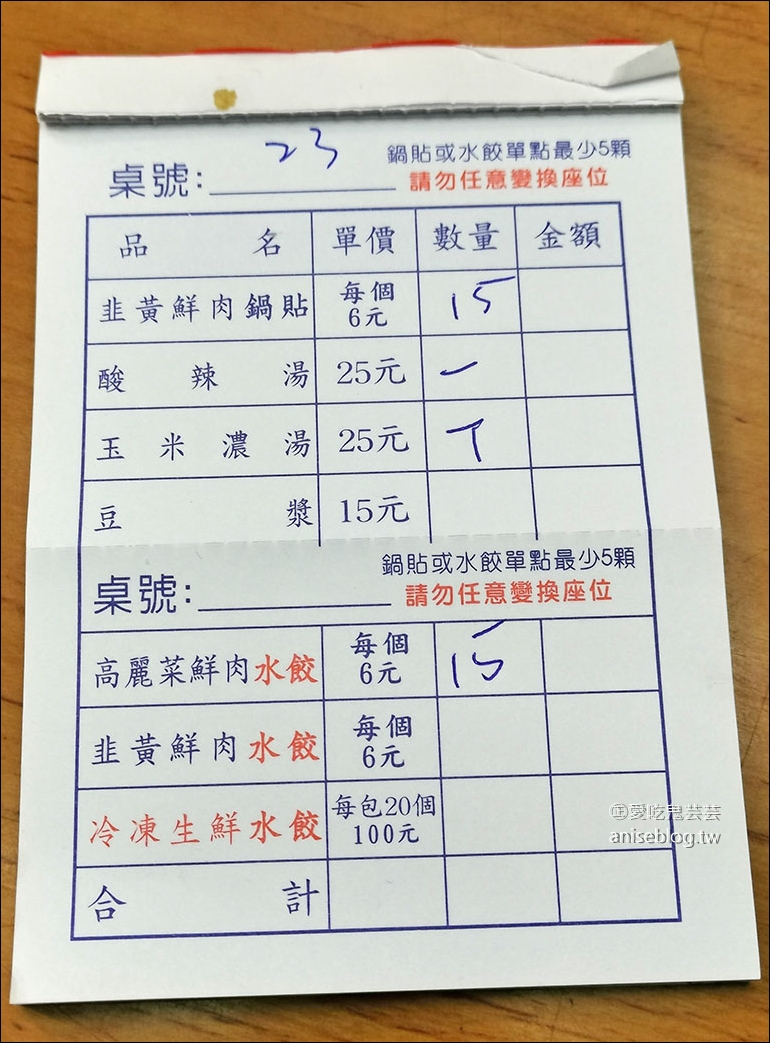 鍋貼或水餃單點最少5顆
桌號: 23 請勿任意變換座位
品名 單價 數量 金額
韭黃鮮肉鍋貼 每個6元 15
酸辣湯 25元 一
玉米濃湯 25元
豆漿 15元
鍋貼或水餃單點最少5顆
桌號: 請勿任意變換座位
高麗菜鮮肉水餃 每個6元 15
韭黃鮮肉水餃 每個6元
冷凍生鮮水餃 每包20個100元
合計
㊣愛吃鬼芸芸
aniseblog.tw